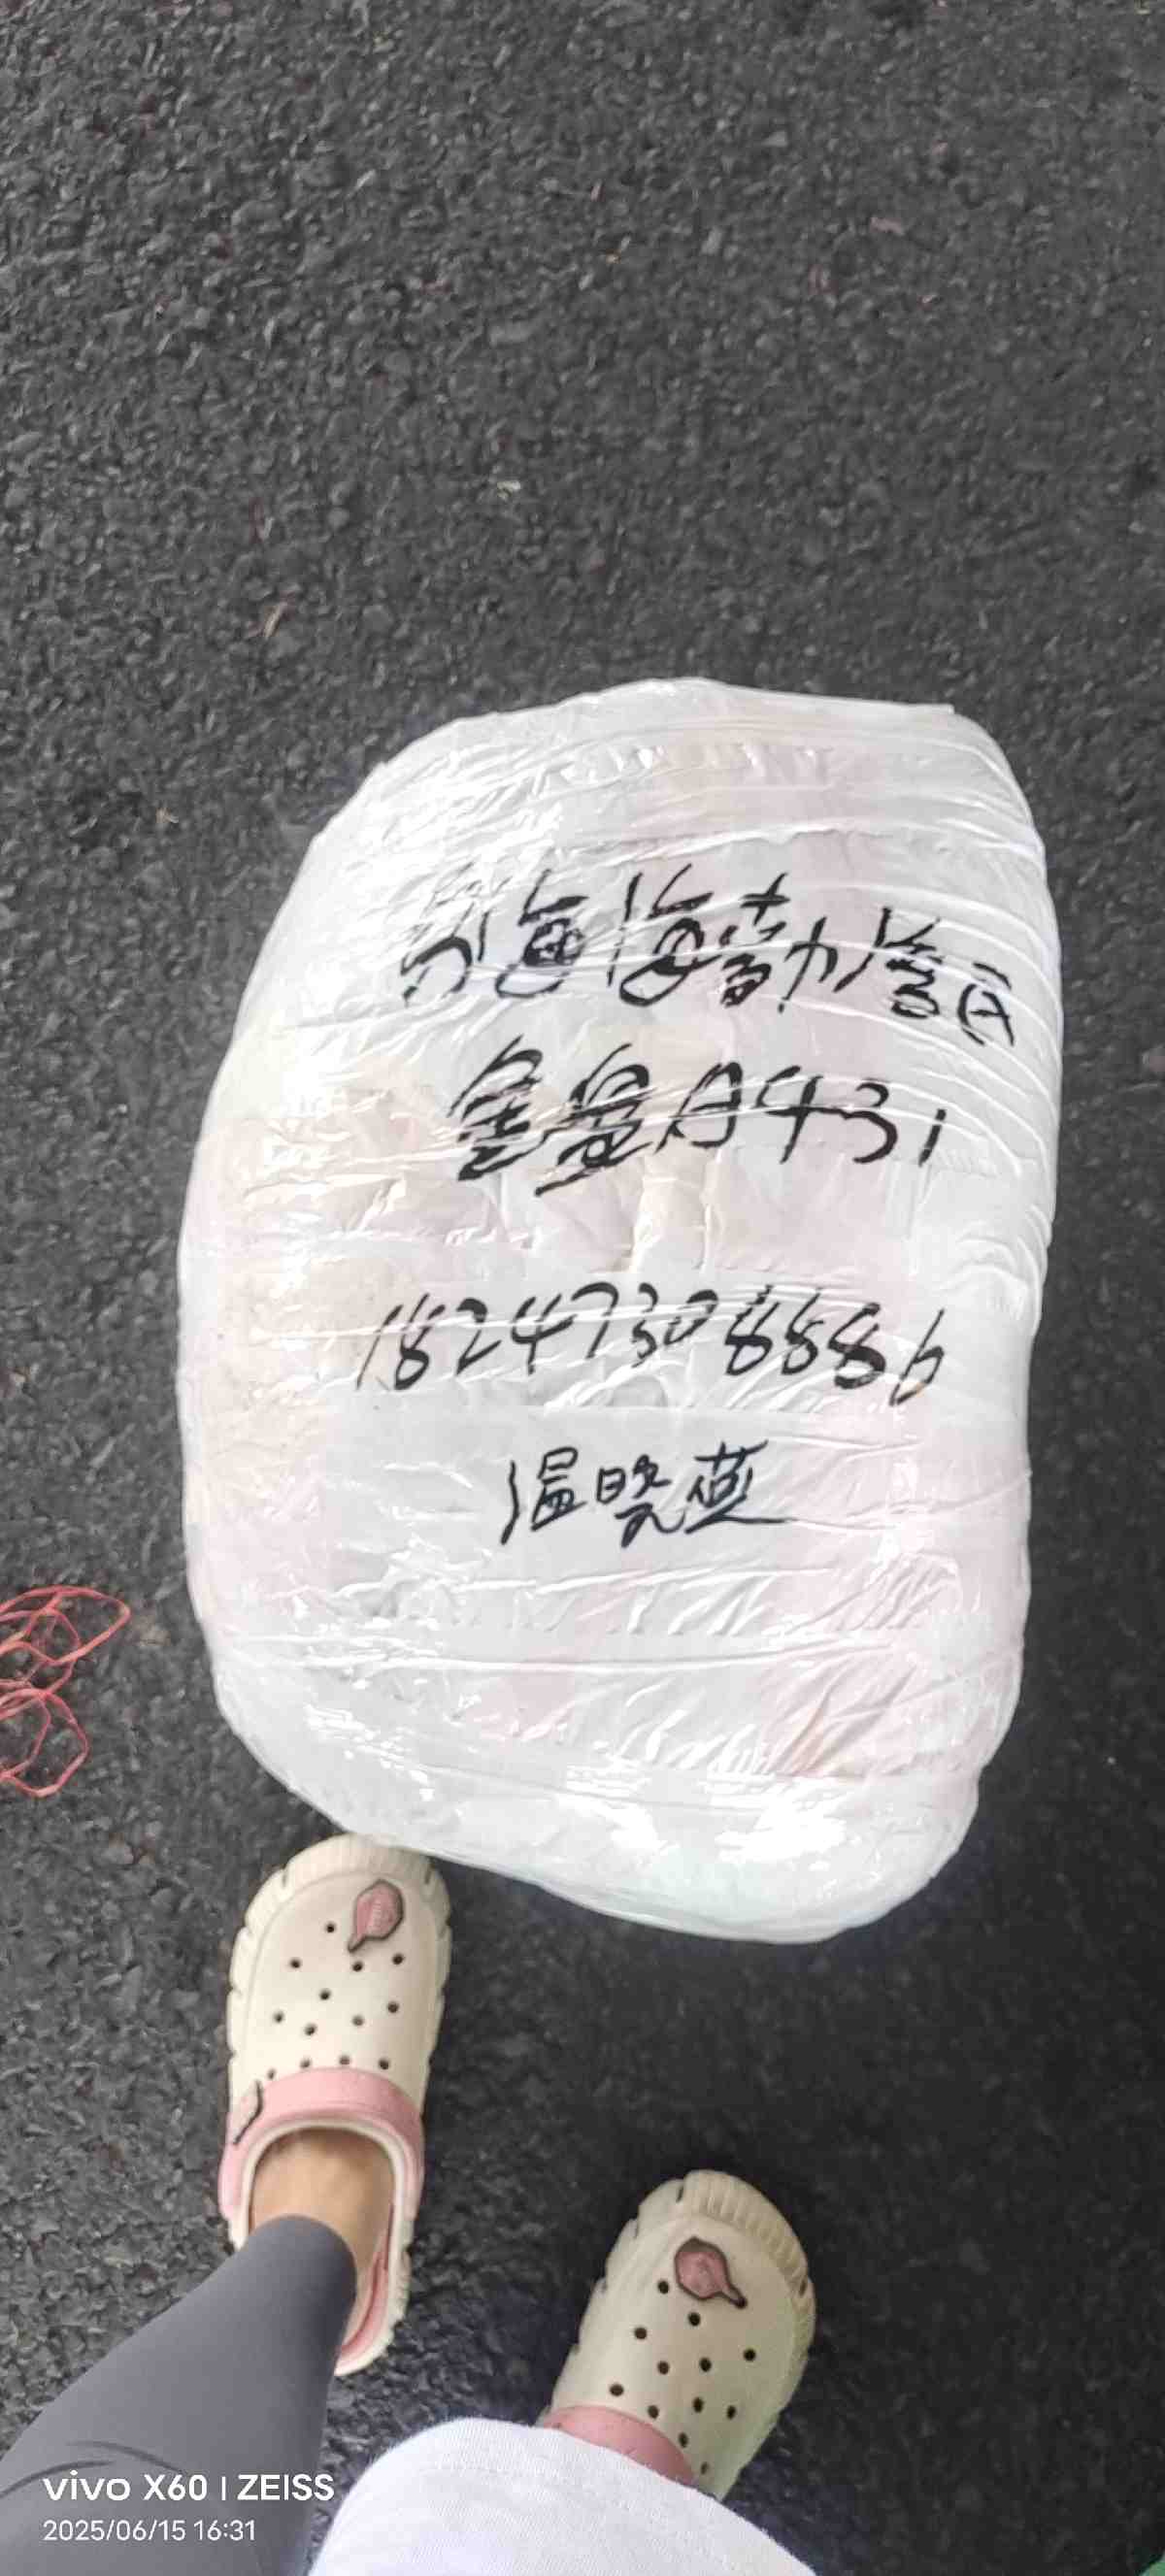 乌海海勃湾区
金盘A431
18247308886
温晓燕
vivo X60 | ZEISS
2025/06/15 16:31